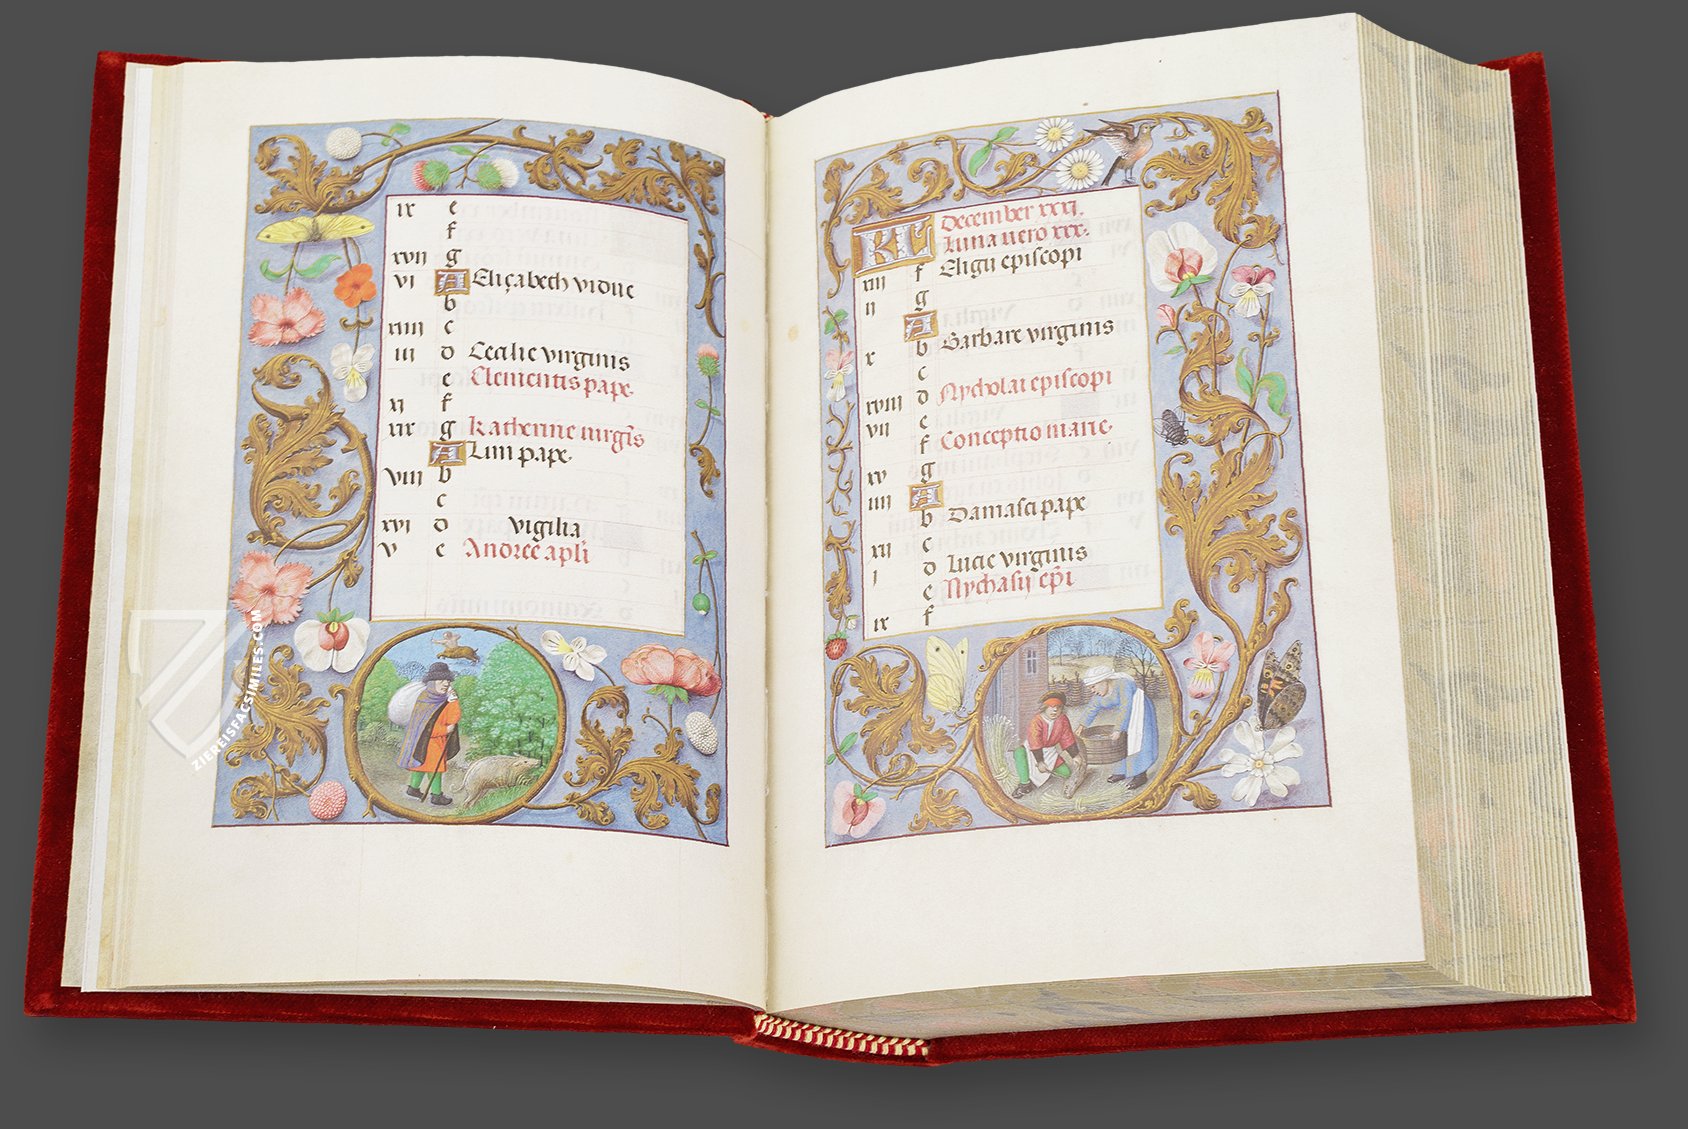 ix e
f
xvii g
vi A Elizabeth vidue
b
xiiii c
iii d Cecilie virginis
e Clementis pape.
xi f
xix g Katherine virgis
A Lini pape.
viii b
c
xvi d vigilia
v e Andree apli
KL December xxxi.
Luna vero xxx.
f Eligii episcopi
xiii g
ii A
b Barbare virginis
x c
d Nycholai episcopi
xviii e
vii f Conceptio marie.
g
xv A
iiii b Damasci pape
c
xii d Lucie virginis
i e Nychasii epi
f
ix
ZIEREISFACSIMILES.COM